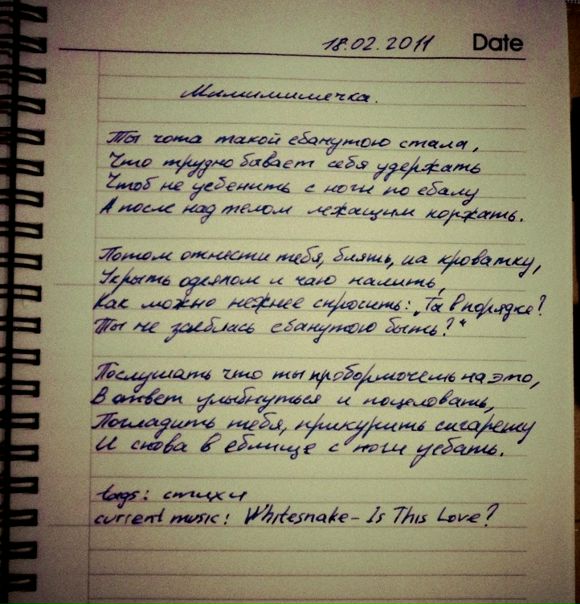 18.02.2011 Date
Мимимимечка.
Ты чота такой ебанутою стала,
Что трудно бывает себя удержать
Чтоб не уебенить с ноги по ебалу
А после над телом лежащим поржать.
Потом отнести тебя, блять, на кроватку,
Укрыть одеялом и чаю налить,
Как можно нежнее спросить: „Та в порядке?
Ты не заеблась ебанутою быть?“
Послушать что ты пробормочешь на это,
В ответ улыбнуться и поцеловать,
Погладить тебя, прикурить сигарету
И снова в еблище с ноги уебать.
tags: стихи
current music: Whitesnake - Is This Love?